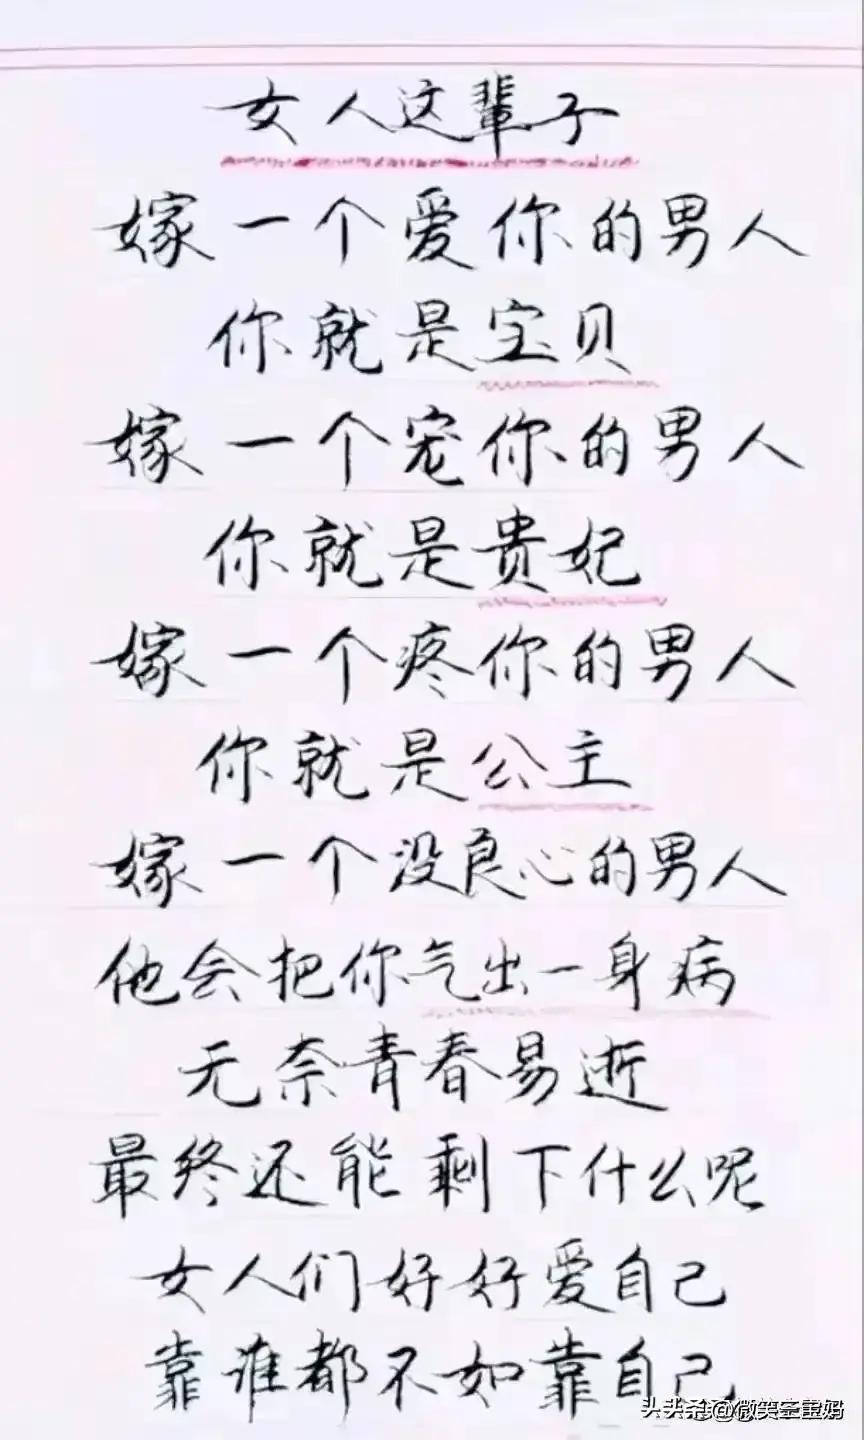 女人这辈子
嫁一个爱你的男人
你就是宝贝
嫁一个宠你的男人
你就是贵妃
嫁一个疼你的男人
你就是公主
嫁一个没良心的男人
他会把你气出一身病
无奈青春易逝
最终还能剩下什么呢
女人们好好爱自己
靠谁都不如靠自己
头条@微笑三宝妈